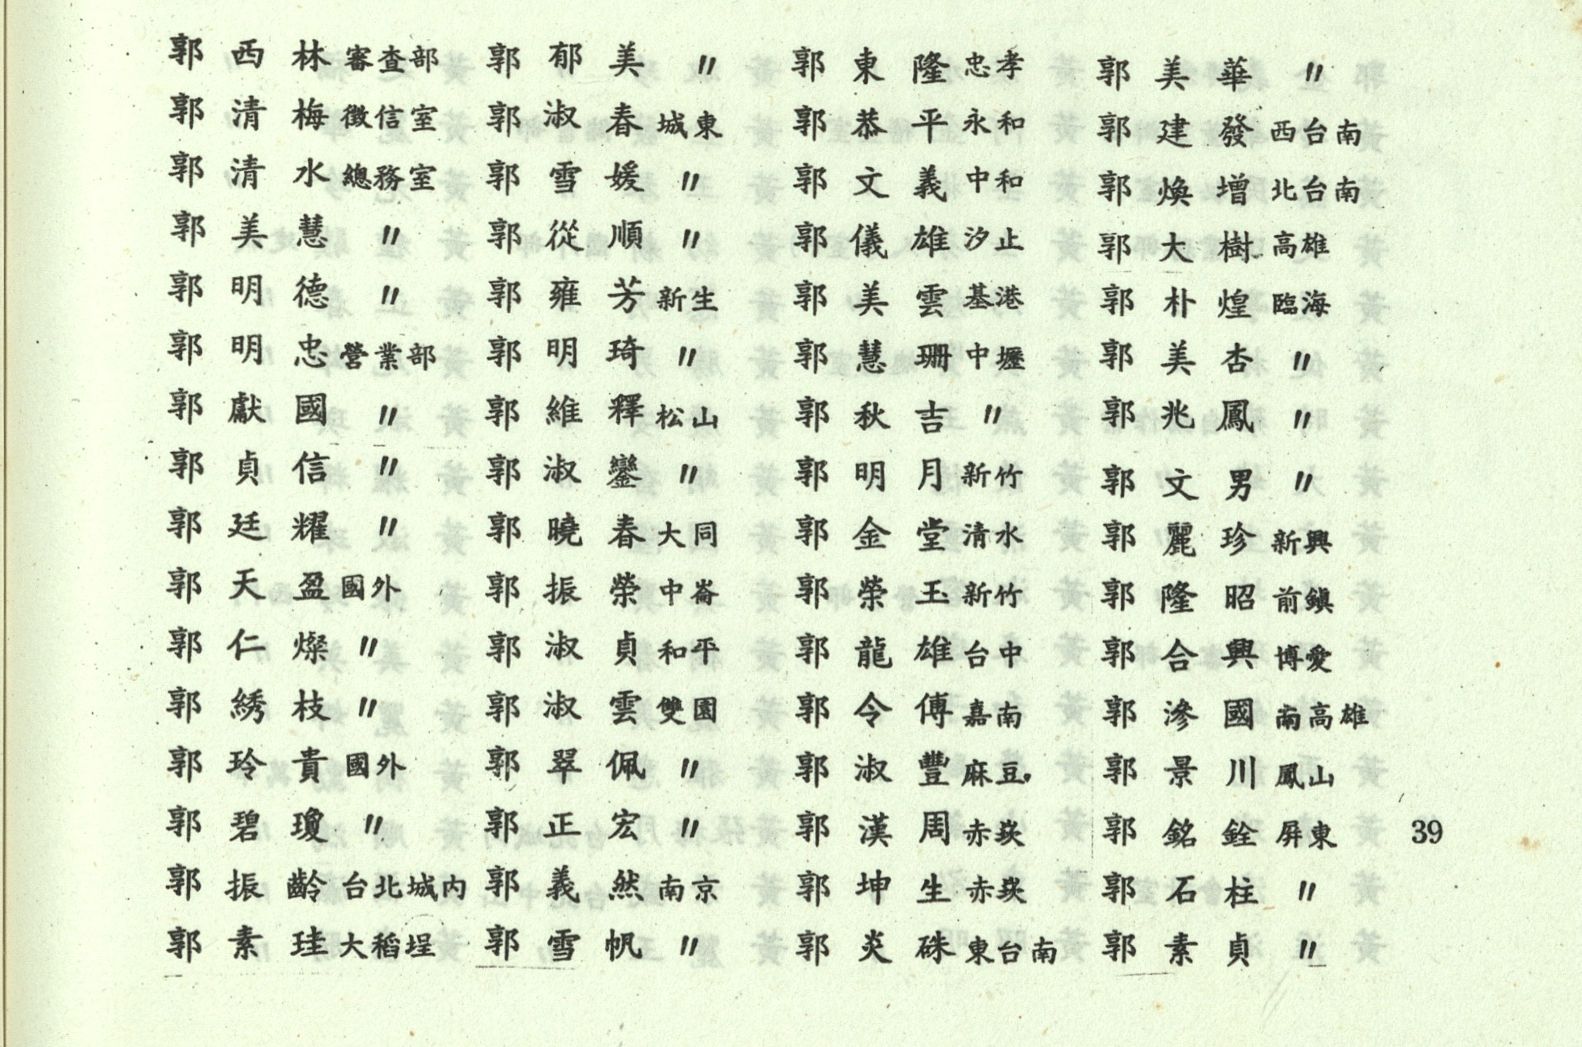 郭西林 審查部
郭清梅 徵信室
郭清水 總務室
郭美慧 〃
郭明德 〃
郭明忠 營業部
郭獻國 〃
郭貞信 〃
郭廷耀 〃
郭天盈 國外
郭仁燦 〃
郭綉枝 〃
郭玲貴 國外
郭碧瓊 〃
郭振齡 台北城內
郭素珪 大稻埕
郭郁美 〃
郭淑春 城東
郭雪媛 〃
郭從順 〃
郭雍芳 新生
郭明琦 〃
郭維釋 松山
郭淑鑾 〃
郭曉春 大同
郭振榮 中崙
郭淑貞 和平
郭淑雲 雙園
郭翠佩 〃
郭正宏 〃
郭義然 南京
郭雪帆 〃
郭東隆 忠孝
郭恭平 永和
郭文義 中和
郭儀雄 汐止
郭美雲 基港
郭慧珊 中壢
郭秋吉 〃
郭明月 新竹
郭金堂 清水
郭榮玉 新竹
郭龍雄 台中
郭令傅 嘉南
郭淑豐 麻豆
郭漢周 赤崁
郭坤生 赤崁
郭炎硃 東台南
郭美華 〃
郭建發 西台南
郭煥增 北台南
郭大樹 高雄
郭朴煌 臨海
郭美杏 〃
郭兆鳳 〃
郭文男 〃
郭麗珍 新興
郭隆昭 前鎮
郭合興 博愛
郭滲國 南高雄
郭景川 鳳山
郭銘銓 屏東
郭石柱 〃
郭素貞 〃
39